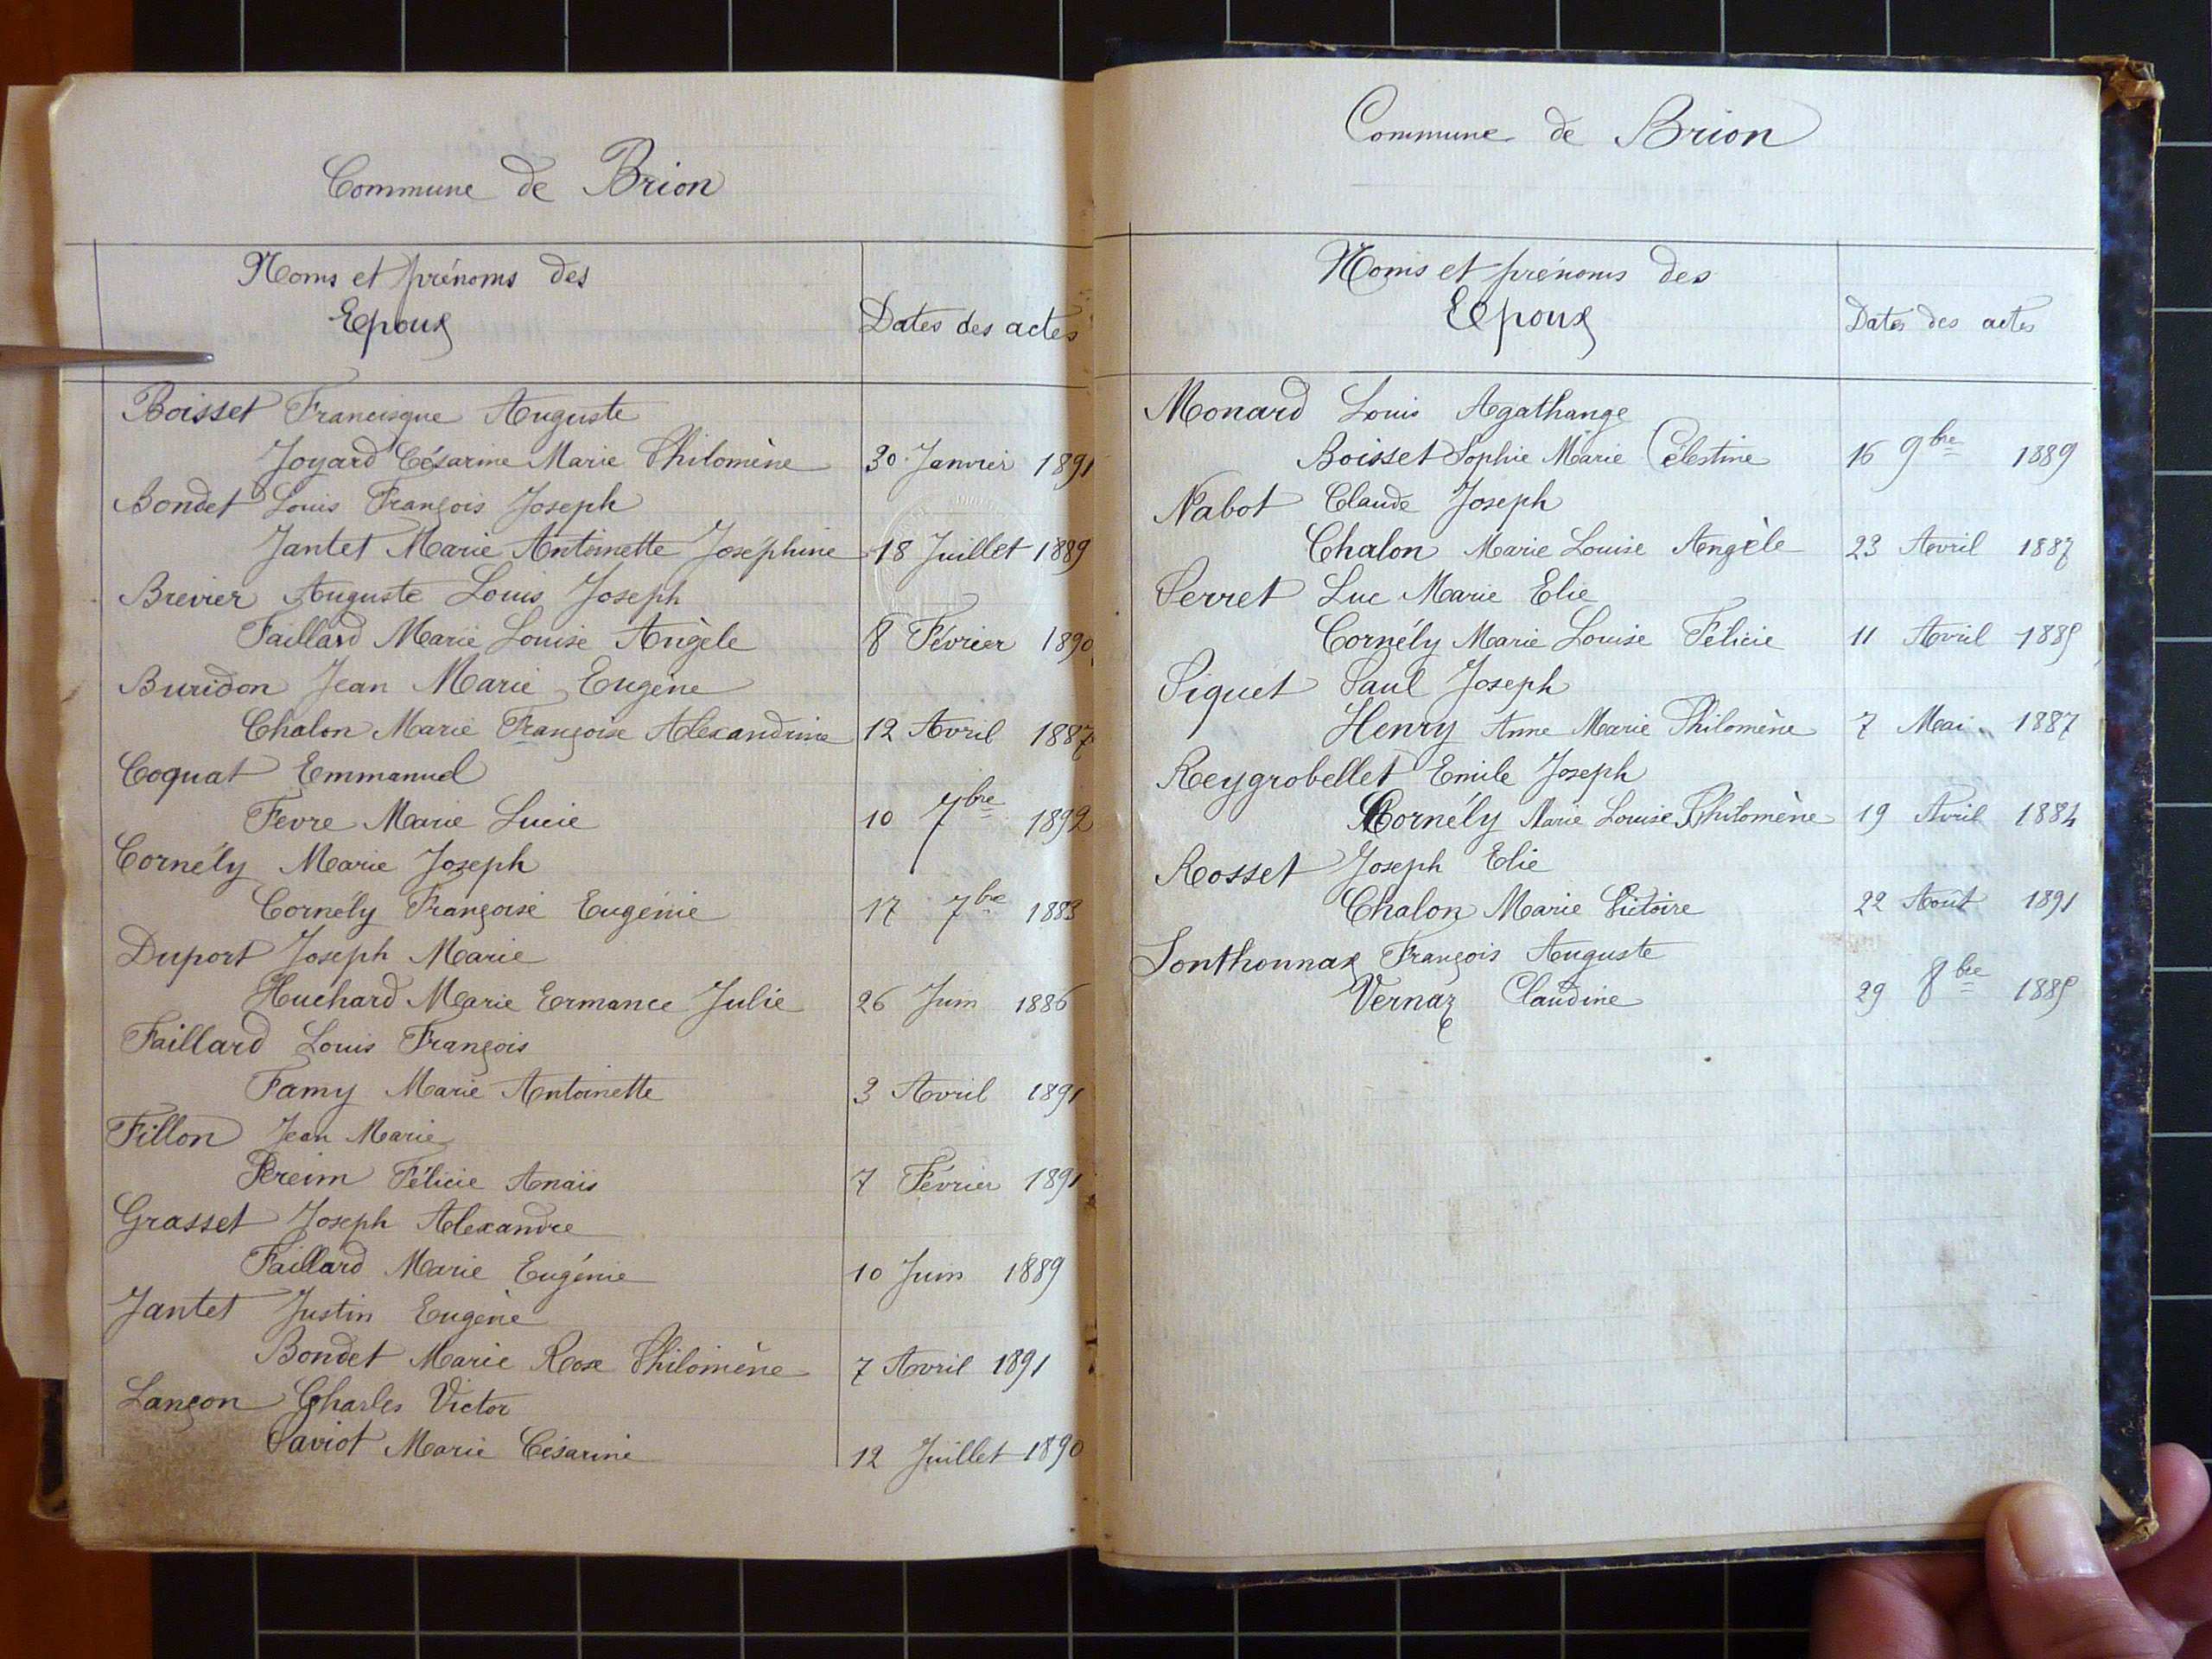 Commune de Brion
Noms et prénoms des
Epoux
Dates des actes
Boisset Francisque Auguste
Joyard Césarine Marie Philomène 30 Janvier 1891
Bondet Louis François Joseph
Jantet Marie Antoinette Joséphine 18 Juillet 1889
Brevier Auguste Louis Joseph
Faillard Marie Louise Angèle 8 Février 1890
Buridon Jean Marie Eugène
Chalon Marie Françoise Alexandrine 12 Avril 1887
Coquat Emmanuel
Fevre Marie Lucie 10 7bre 1892
Cornély Marie Joseph
Cornély Françoise Eugénie 17 7bre 1883
Duport Joseph Marie
Huchard Marie Ermance Julie 26 Juin 1886
Faillard Louis François
Famy Marie Antoinette 3 Avril 1891
Fillon Jean Marie
Pereim Félicie Anaïs 7 Février 1891
Grasset Joseph Alexandre
Faillard Marie Eugénie 10 Juin 1889
Jantet Justin Eugène
Bondet Marie Rose Philomène 7 Avril 1891
Lançon Charles Victor
Paviot Marie Césarine 12 Juillet 1890
Commune de Brion
Noms et prénoms des
Epoux
Dates des actes
Monard Louis Agathange
Boisset Sophie Marie Célestine 16 9bre 1889
Nabot Claude Joseph
Chalon Marie Louise Angèle 23 Avril 1887
Perret Luc Marie Elie
Cornély Marie Louise Félicie 11 Avril 1885
Piquet Paul Joseph
Henry Anne Marie Philomène 7 Mai 1887
Reygrobellet Emile Joseph
Cornély Marie Louise Philomène 19 Avril 1884
Rosset Joseph Elie
Chalon Marie Victoire 22 Août 1891
Sonthonnax François Auguste
Vernaz Claudine 29 8bre 1885